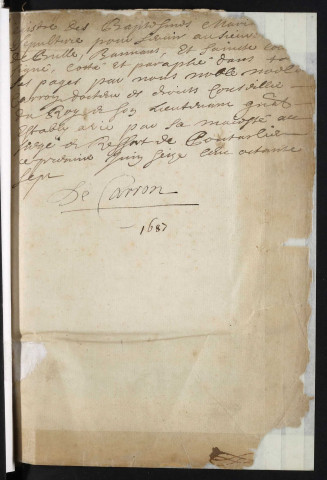 istre des Baptesmes Mari
epulture pour servir au sieur
Brulle, Bannans, Et Saincte co
igne, Cotté et paraphé dans to
les pages par nous noble noël
arron docteur es droits Conseille
du Roy et son Lieutenant gnal
Establ par sa majesté au
siege et Ressort de Pontarlier
ce Juin seize cent octante
sept
De Carron
1687